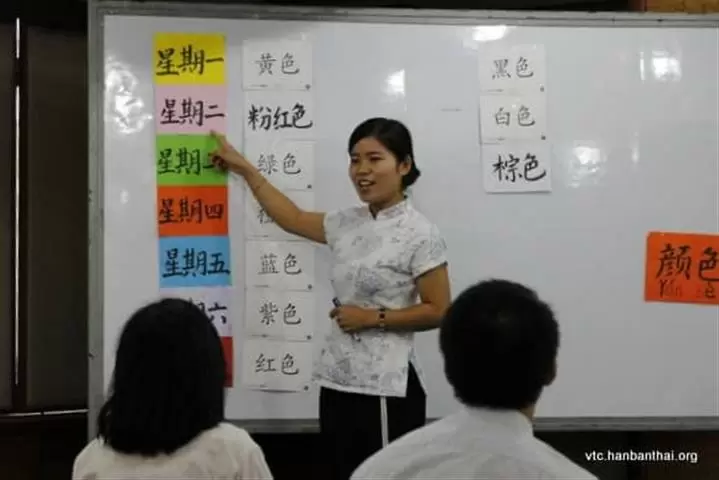 星期一
星期二
星期
星期四
星期五
六
黄色
粉红色
绿色
色
蓝色
紫色
红色
黑色
白色
棕色
颜色
vtc.hanbanthai.org